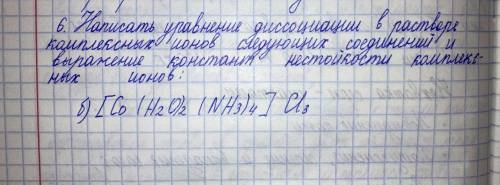 6. Написать уравнение диссоциации в растворе
комплексных ионов следующих соединений и
выражение констант нестойкости комплекс-
ных ионов:
б) [Co (H2O)2 (NH3)4] Cl3